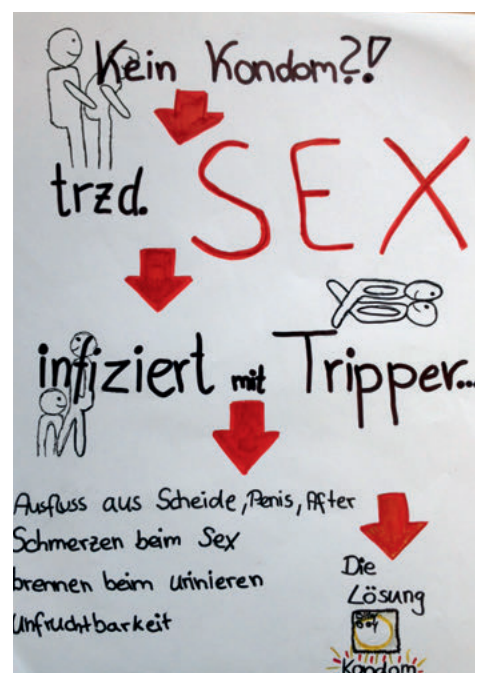 Kein Kondom?!
trzd. SEX
infiziert mit Tripper...
Ausfluss aus Scheide, Penis, After
Schmerzen beim Sex
brennen beim urinieren
Unfruchtbarkeit
Die
Lösung
Kondom